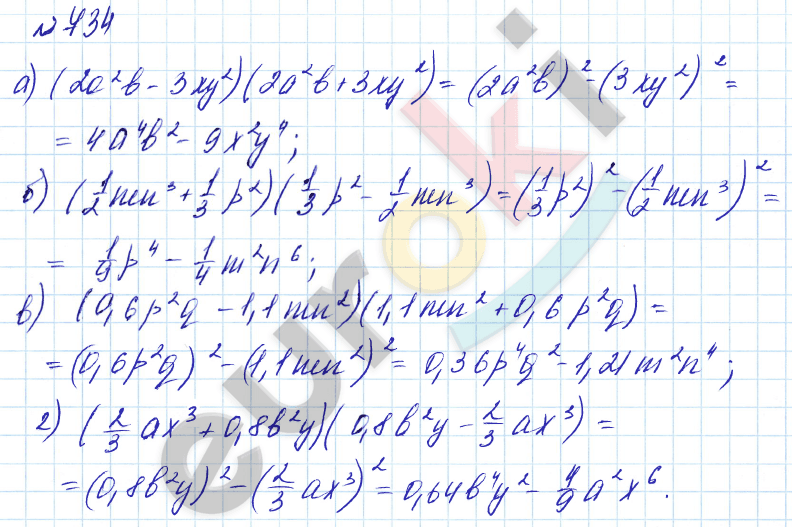 № 734
а) (2a²b - 3xy²)(2a²b + 3xy²) = (2a²b)² - (3xy²)² =
= 4a⁴b² - 9x²y⁴;
б) (1/2 mn³ + 1/3 p²)(1/3 p² - 1/2 mn³) = (1/3 p²)² - (1/2 mn³)² =
= 1/9 p⁴ - 1/4 m²n⁶;
в) (0,6p²q - 1,1mn²)(1,1mn² + 0,6p²q) =
= (0,6p²q)² - (1,1mn²)² = 0,36p⁴q² - 1,21m²n⁴;
г) (2/3 ax³ + 0,8b²y)(0,8b²y - 2/3 ax³) =
= (0,8b²y)² - (2/3 ax³)² = 0,64b⁴y² - 4/9 a²x⁶.
euroki